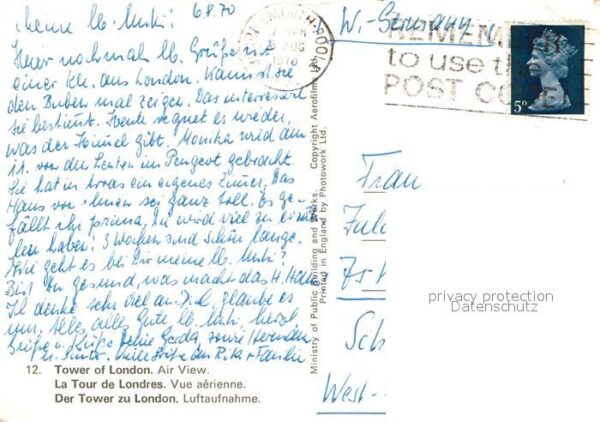 Meine lb. Muki! 6.8.70
Hier nochmal lb. Grüße mit
einer Kte. aus London. Kannst sie
den Buben mal zeigen. Das interessiert
sie bestimmt. Heute regnet es wieder,
was der Himmel gibt. Monika wird am
11. von den Leuten im Peugeot gebracht.
Sie hat in ein eigenes Zimmer, Das
Haus von ihnen sei ganz toll. Es ge-
fällt ihr prima. Du wird viel zu erzäh-
len haben! 3 Wochen sind schon lange.
Wie geht es bei Dir meine lb. Muki?
Bist Du gesund, was macht das H. Haus
Ich denke sehr viel an Dich, glaube es
nur. Alles alles Gute lb. Muki, herzl
Grüße u. Küsse Deine Gerda, sowie Hermann
u. Viele Grüße an Rita + Familie
12. Tower of London. Air View.
La Tour de Londres. Vue aérienne.
Der Tower zu London. Luftaufnahme.
Ministry of Public Building and Works. Copyright Aerofilms Ltd.
Printed in England by Photowork Ltd.
W.-Germany
7 PM
6 AUG
1970
REMEMBER
to use the
POST CODE
5D
Frau
Juli
Is
Sch
West-
privacy protection
Datenschutz